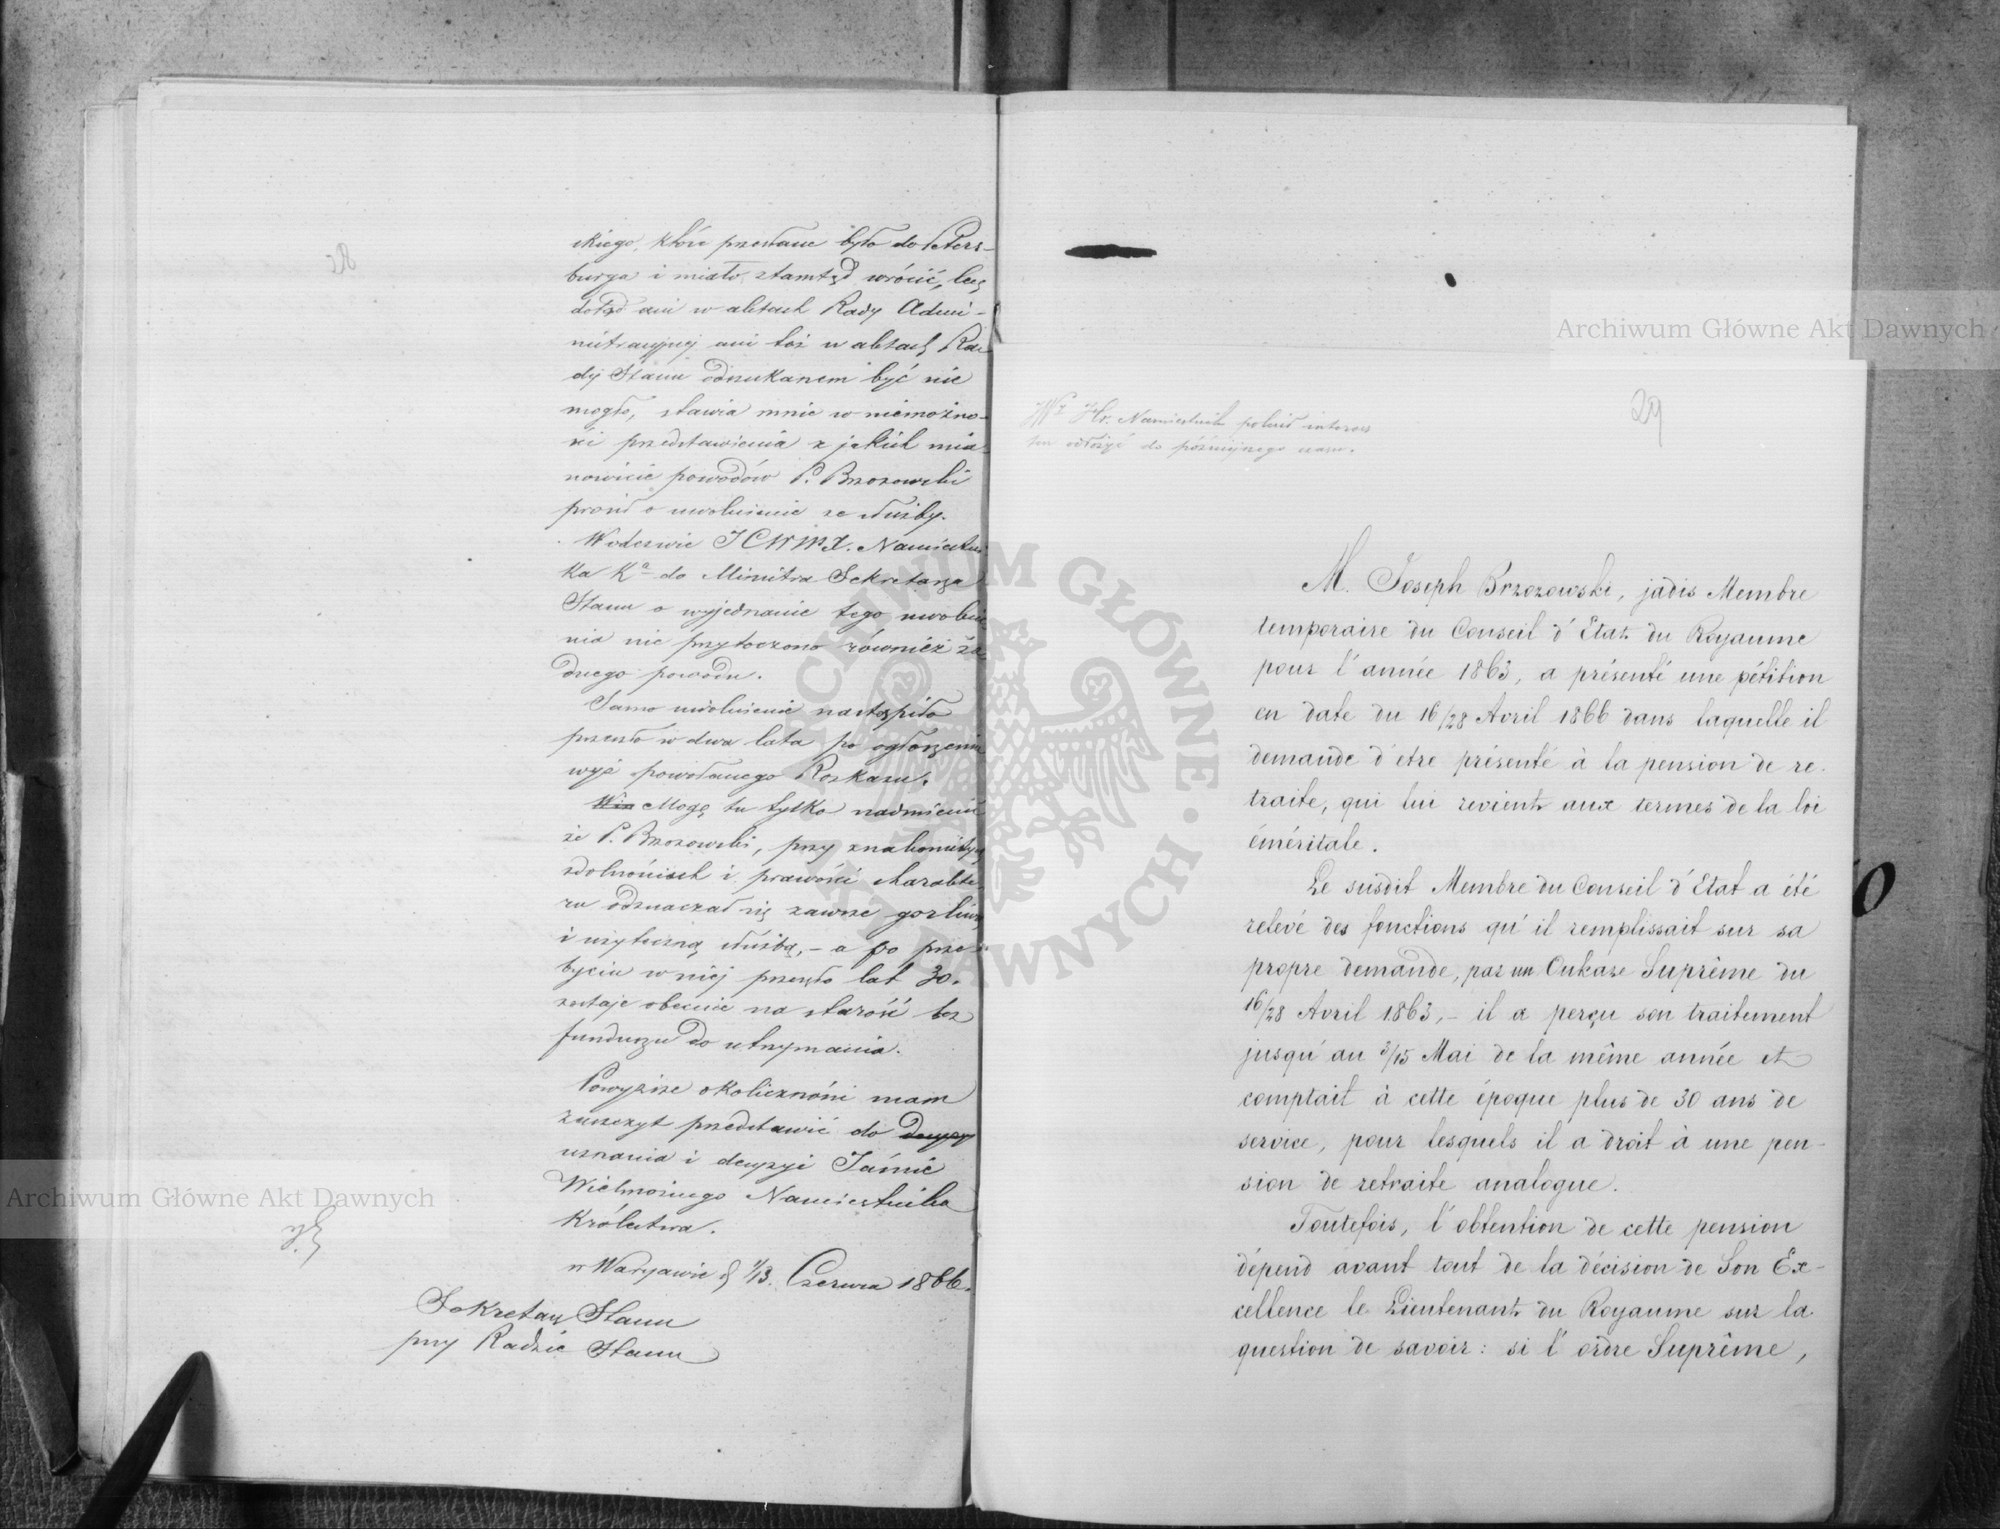 skiego, które przesłane było do Peters-
burga i miało ztamtąd wrócić, lecz
dotąd ani w aktach Rady Admi-
nistracyjnej ani też w aktach Ra-
dy Stanu odszukanem być nie
mogło, stawia mnie w niemożno-
ści przedstawienia z jakich mia-
nowicie powodów P. Brzozowski
prosił o uwolnienie ze służby.
W odezwie JCWW. Namiestni-
ka Kr. do Ministra Sekretarza
Stanu o wyjednanie tego uwolnie-
nia nie przytoczono również ża-
dnego powodu.
Samo uwolnienie nastąpiło
przeszło w dwa lata po ogłoszeniu
wyż powołanego Rozkazu.
Mogę tu tylko nadmienić
że P. Brzozowski, przy znakomitych
zdolnościach i prawości charakte-
ru odznaczał się zawsze gorliwą
i użyteczną służbą, - a po prze-
byciu w niej przeszło lat 30.
zostaje obecnie na starość bez
funduszu do utrzymania.
Powyższe okoliczności mam
zaszczyt przedstawić do
uznania i decyzyi Jaśnie
Wielmożnego Namiestnika
Królestwa.
w Warszawie d. 1/13. Czerwca 1866.
Sekretarz Stanu
przy Radzie Stanu
Hr. Namiestnik polecił interes
ten odłożyć do późniejszego czasu.
29
M. Joseph Brzozowski, jadis Membre
temporaire du Conseil d'Etat du Royaume
pour l'année 1863, a présenté une pétition
en date du 16/28 Avril 1866 dans laquelle il
demande d'etre présenté à la pension de re-
traite, qui lui revient aux termes de la loi
éméritale.
Le susdit Membre du Conseil d'Etat a été
relevé des fonctions qu'il remplissait sur sa
propre demande, par un Oukase Suprême du
16/28 Avril 1863, - il a perçu son traitement
jusqu'au 3/15 Mai de la même année et
comptait à cette époque plus de 30 ans de
service, pour lesquels il a droit à une pen-
sion de retraite analogue.
Toutefois, l'obtention de cette pension
dépend avant tout de la décision de Son Ex-
cellence le Lieutenant du Royaume sur la
question de savoir: si l'ordre Suprême,
Archiwum Główne Akt Dawnych
Archiwum Główne Akt Dawnych
ARCHIWUM GŁÓWNE AKT DAWNYCH